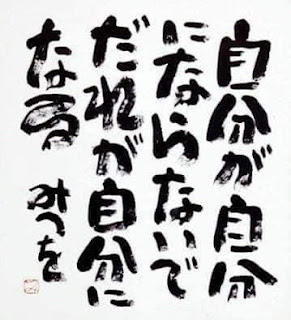 自分が自分
にならないで
だれが自分に
なる　みつを